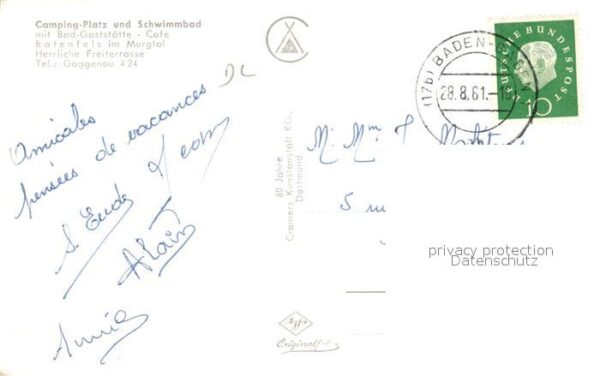 Camping-Platz und Schwimmbad
mit Bad-Gaststätte - Cafe
Rotenfels im Murgtal
Herrliche Freiterrasse
Tel.: Gaggenau 424
Amicales
pensées de vacances
Alain
Annie
60 Jahre
Cramers Kunstanstalt KG.,
Dortmund
Agfa
Original
DEUTSCHE BUNDESPOST
10
(17b) BADEN-BADEN
28.8.61.-18
M. Mme
5
privacy protection
Datenschutz